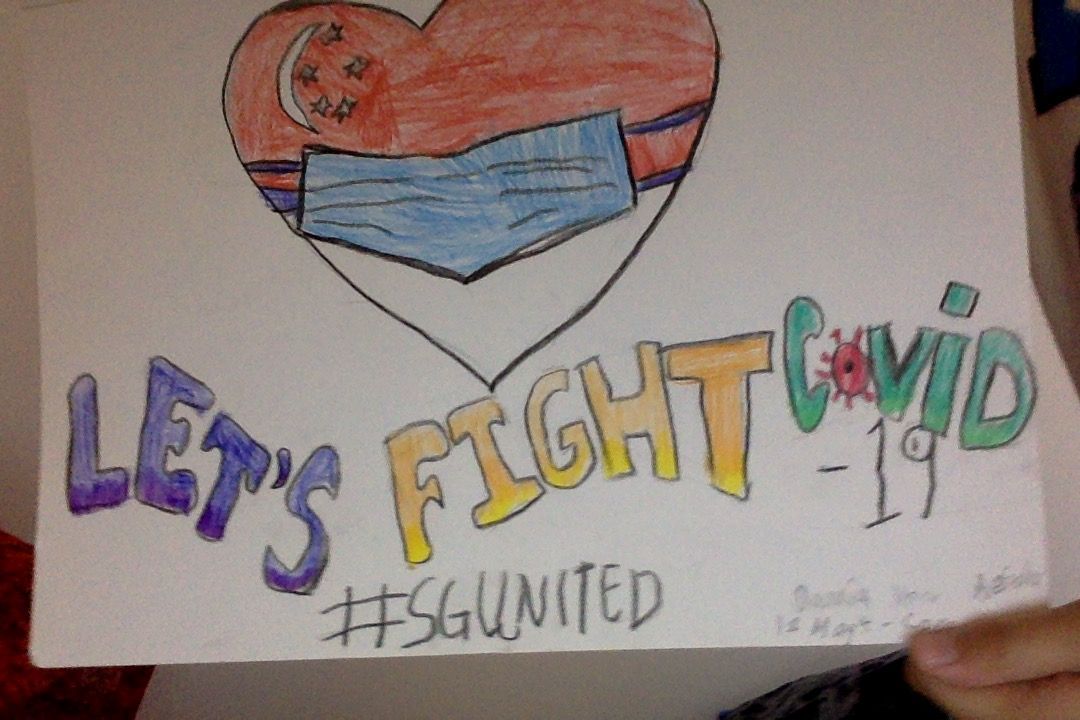 LET'S FIGHT COVID
-19
#SGUNITED